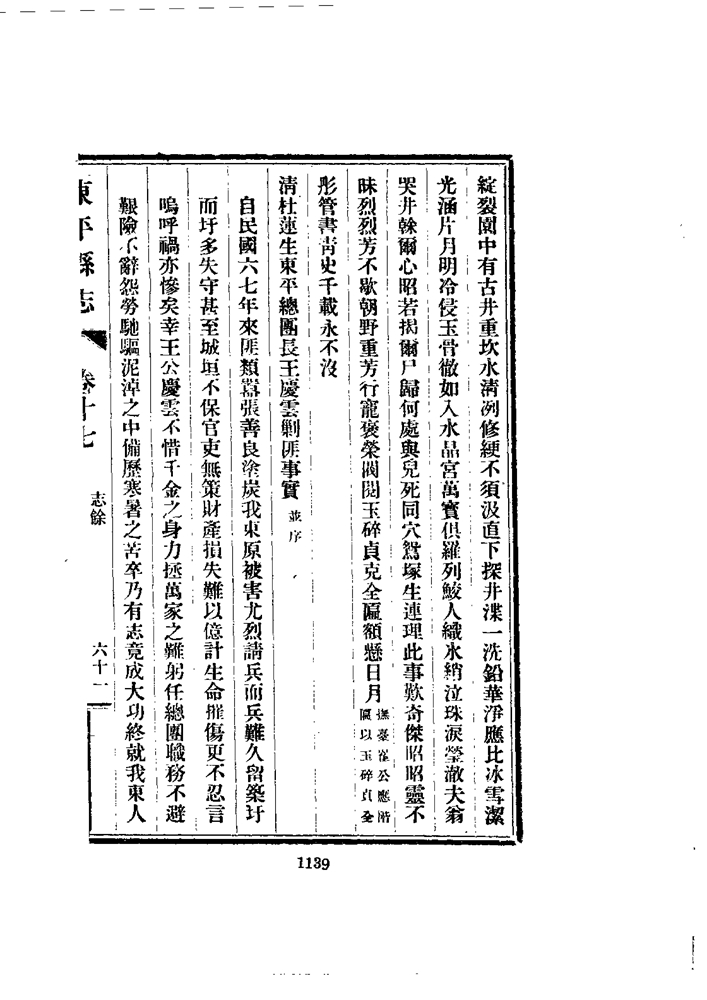 綻裂園中有古井重坎水清冽修綆不須汲直下探井渫一洗鉛華淨應比冰雪潔
光涵片月明冷侵玉骨徹如入水晶宮萬寶俱羅列鮫人織水綃泣珠淚瑩澈夫翁
哭井榦爾心昭若揭爾尸歸何處與兒死同穴鴛塚生連理此事歎奇傑昭昭靈不
昧烈烈芳不歇朝野重芳行寵褒榮閥閱玉碎貞克全匾額懸日月撫臺崔公應階匾以玉碎貞全
彤管書靑史千載永不沒
淸杜蓮生東平總團長王慶雲剿匪事實 並序
自民國六七年來匪類嚣張善良塗炭我東原被害尤烈請兵而兵難久留築圩
而圩多失守甚至城垣不保官吏無策財產損失難以億計生命摧傷更不忍言
嗚呼禍亦慘矣幸王公慶雲不惜千金之身力拯萬家之難躬任總團職務不避
艱險不辭怨勞馳驅泥淖之中備歷寒暑之苦卒乃有志竟成大功終就我東人
東平縣志 卷十七 志餘 六十一
1139